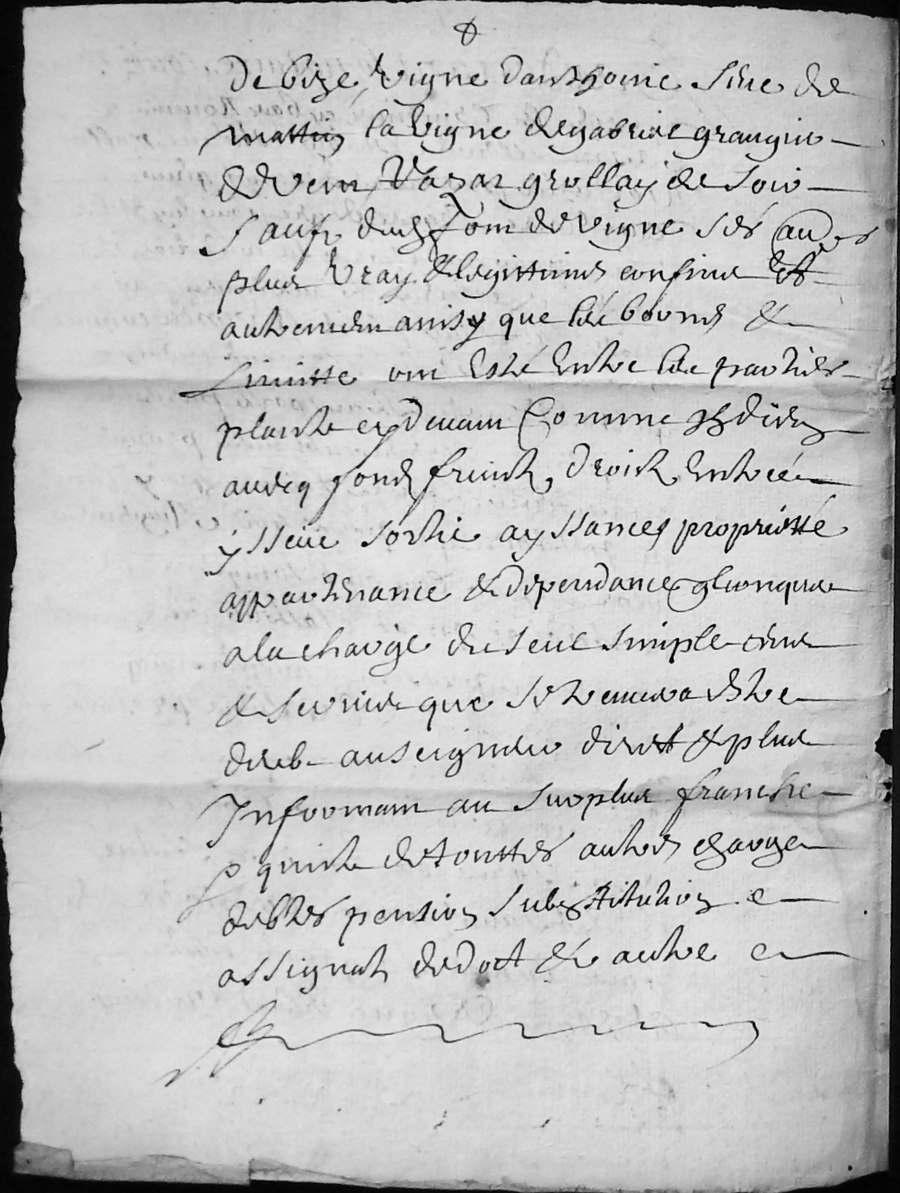 de bize vigne danthoine Sire de
mattin la vigne de gabriel grangier
& de vent vazaz grollay de soir
Sauf dud fom de vigne ses au es
plus vray & legittimes confins Et
autrement ainsy que les bornes &
limitte ont Esté Entre lés parties
planté cy devant Comme Ils disent
avecq fonds fruicts droicts Entrées
yssue sortie ayssances proprietté
appartenance & dependance qlconques
a la charge du seul simple cens
& servis que se trouvera Estre
deub au Seigneur direct & plus
Informant au surplus franche
& quitte de touttes autres charge
debtes pension substitution e
assignats de dot & autre e